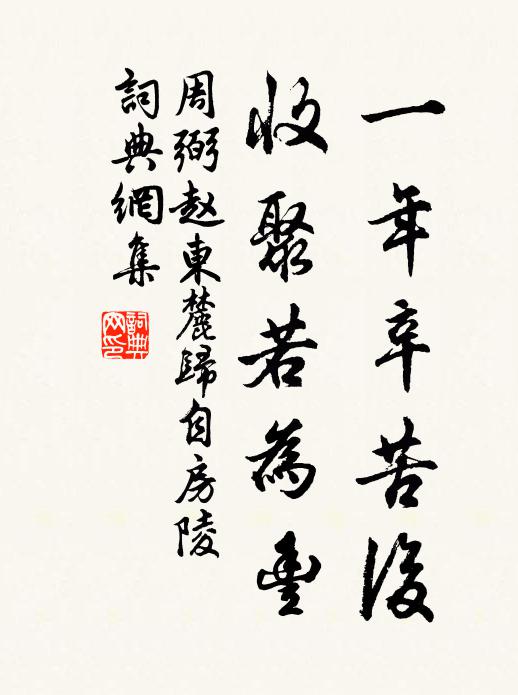 一年辛苦後
收聚若為豐
周弼赵東麓歸自房陵
詞典網集
詞典网印